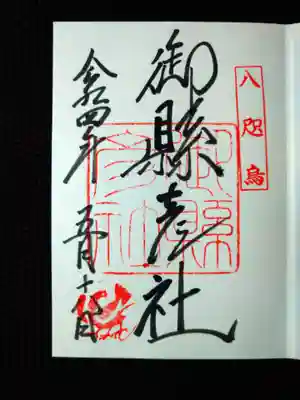 八咫烏
御縣彦社
御縣
彦社
令和四年
五月十八日